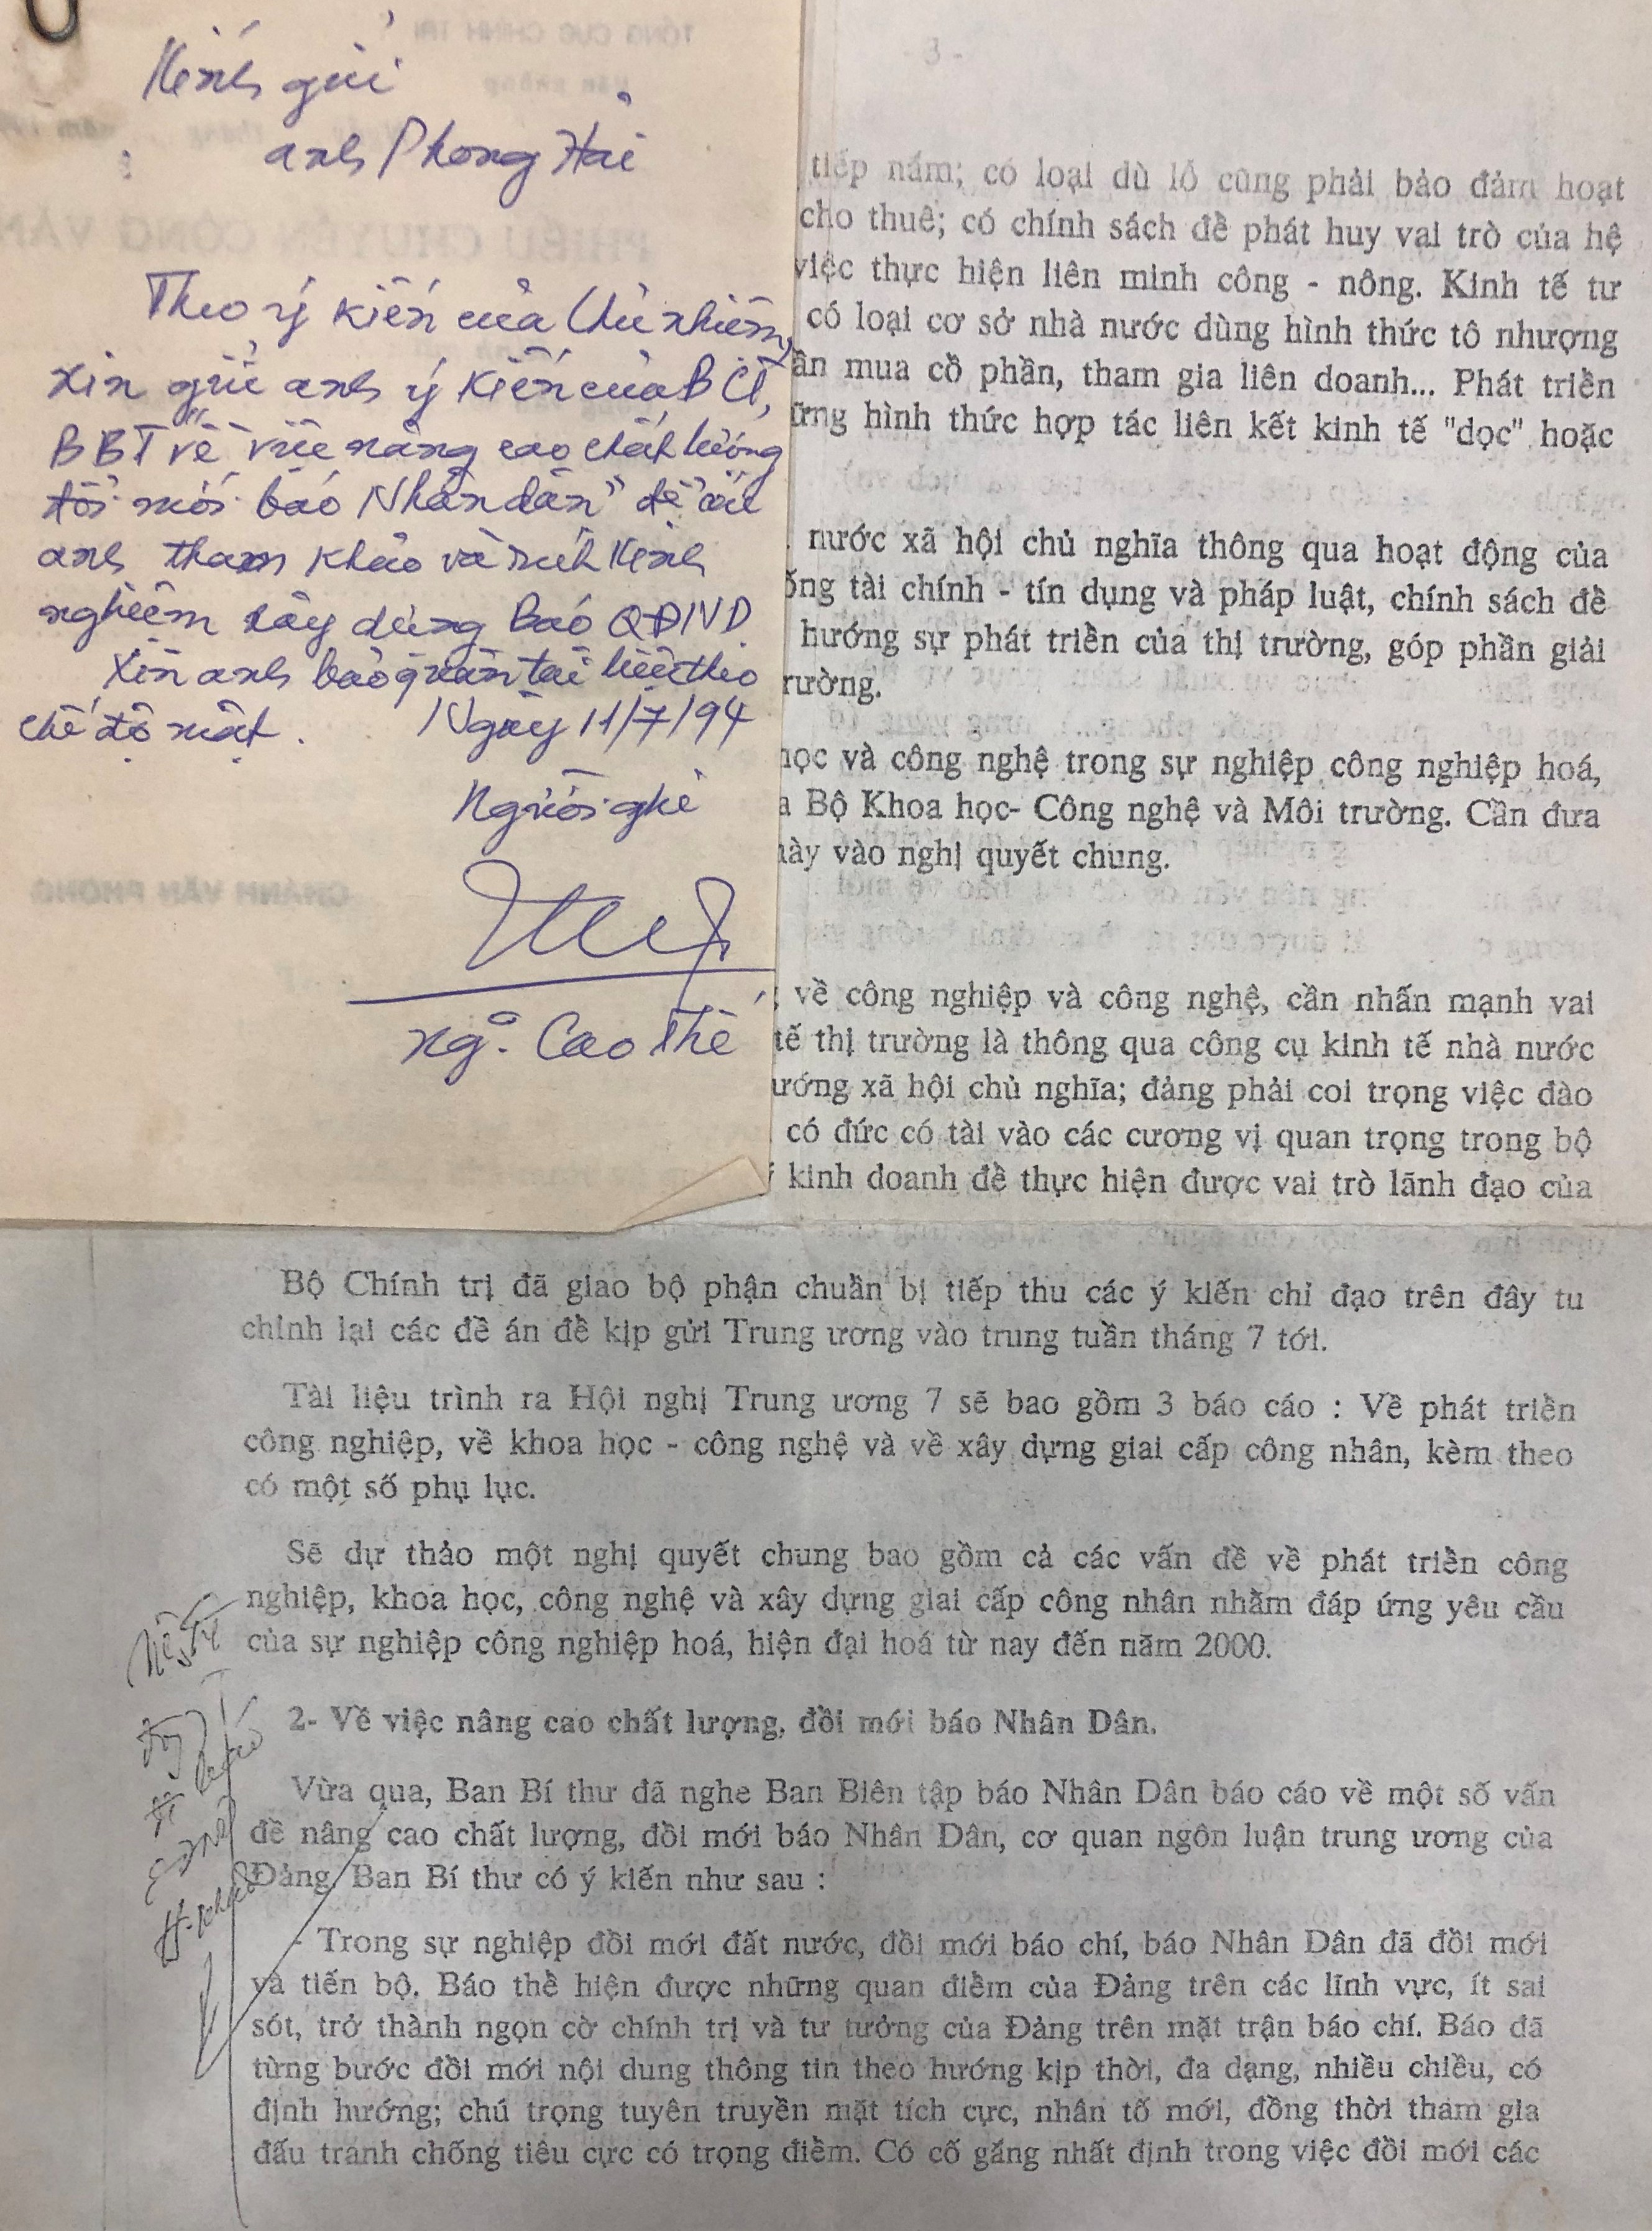 Kính gửi
anh Phong Hải
Theo ý kiến của Chủ nhiệm,
xin gửi anh ý kiến của BCT,
BBT về "việc nâng cao chất lượng
đổi mới báo Nhân dân" để các
anh tham khảo và rút kinh
nghiệm xây dựng báo QĐND
Xin anh bảo quản tài liệu theo
chế độ mật.
Ngày 11/7/94
Người ghi
Ng. Cao Thế
CHÁNH VĂN PHÒNG
- 3 -
tiếp nắm; có loại dù lỗ cũng phải bảo đảm hoạt
cho thuê; có chính sách để phát huy vai trò của hệ
việc thực hiện liên minh công - nông. Kinh tế tư
có loại cơ sở nhà nước dùng hình thức tô nhượng
ần mua cổ phần, tham gia liên doanh... Phát triển
ững hình thức hợp tác liên kết kinh tế "dọc" hoặc
nước xã hội chủ nghĩa thông qua hoạt động của
ống tài chính - tín dụng và pháp luật, chính sách để
hướng sự phát triển của thị trường, góp phần giải
rường.
học và công nghệ trong sự nghiệp công nghiệp hoá,
a Bộ Khoa học- Công nghệ và Môi trường. Cần đưa
này vào nghị quyết chung.
về công nghiệp và công nghệ, cần nhấn mạnh vai
tế thị trường là thông qua công cụ kinh tế nhà nước
ướng xã hội chủ nghĩa; đảng phải coi trọng việc đào
có đức có tài vào các cương vị quan trọng trong bộ
ý kinh doanh để thực hiện được vai trò lãnh đạo của
Bộ Chính trị đã giao bộ phận chuẩn bị tiếp thu các ý kiến chỉ đạo trên đây tu
chỉnh lại các đề án để kịp gửi Trung ương vào trung tuần tháng 7 tới.
Tài liệu trình ra Hội nghị Trung ương 7 sẽ bao gồm 3 báo cáo : Về phát triển
công nghiệp, về khoa học - công nghệ và về xây dựng giai cấp công nhân, kèm theo
có một số phụ lục.
Sẽ dự thảo một nghị quyết chung bao gồm cả các vấn đề về phát triển công
nghiệp, khoa học, công nghệ và xây dựng giai cấp công nhân nhằm đáp ứng yêu cầu
của sự nghiệp công nghiệp hoá, hiện đại hoá từ nay đến năm 2000.
2- Về việc nâng cao chất lượng, đổi mới báo Nhân Dân.
Vừa qua, Ban Bí thư đã nghe Ban Biên tập báo Nhân Dân báo cáo về một số vấn
đề nâng cao chất lượng, đổi mới báo Nhân Dân, cơ quan ngôn luận trung ương của
Đảng. Ban Bí thư có ý kiến như sau :
- Trong sự nghiệp đổi mới đất nước, đổi mới báo chí, báo Nhân Dân đã đổi mới
và tiến bộ. Báo thể hiện được những quan điểm của Đảng trên các lĩnh vực, ít sai
sót, trở thành ngọn cờ chính trị và tư tưởng của Đảng trên mặt trận báo chí. Báo đã
từng bước đổi mới nội dung thông tin theo hướng kịp thời, đa dạng, nhiều chiều, có
định hướng; chú trọng tuyên truyền mặt tích cực, nhân tố mới, đồng thời tham gia
đấu tranh chống tiêu cực có trọng điểm. Có cố gắng nhất định trong việc đổi mới các